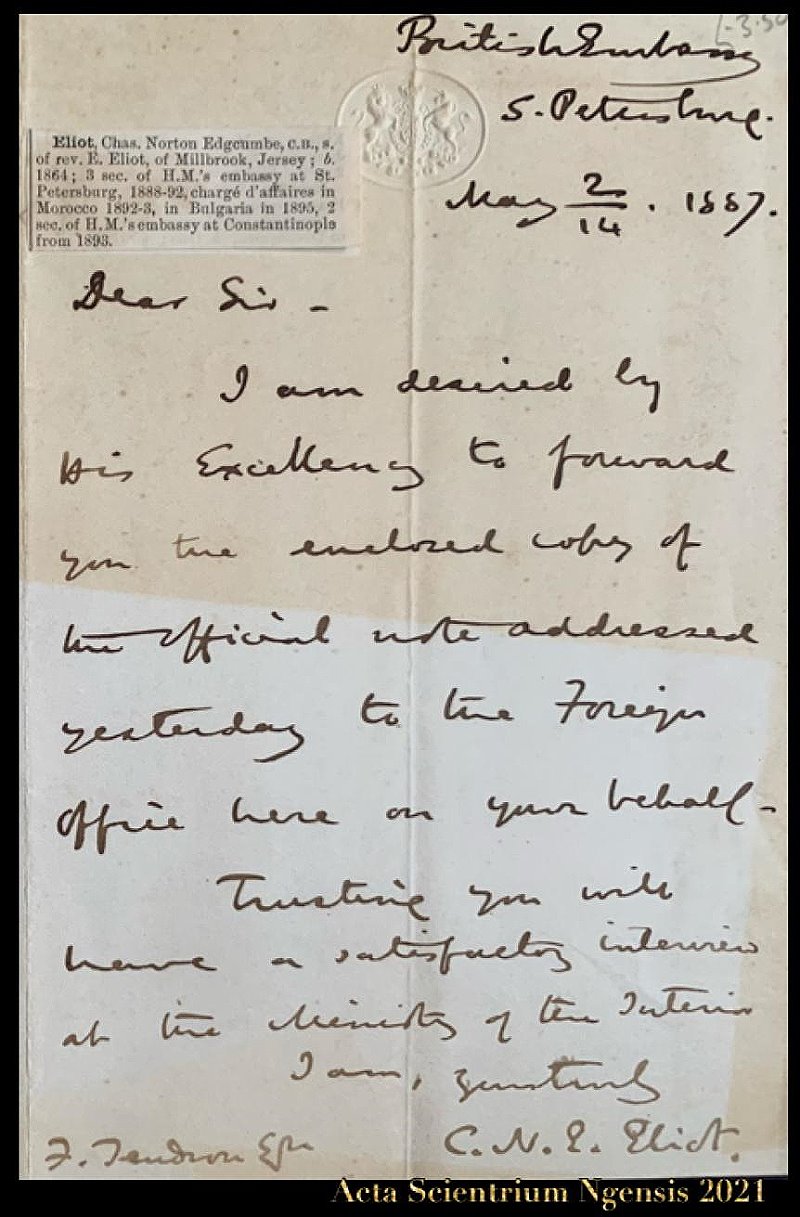 British Embassy
S. Petersburg.
May 2/14. 1887.
Eliot, Chas. Norton Edgcumbe, C.B., s.
of rev. E. Eliot, of Millbrook, Jersey; b.
1864; 3 sec. of H.M.'s embassy at St.
Petersburg, 1888-92, chargé d'affaires in
Morocco 1892-3, in Bulgaria in 1895, 2
sec. of H.M.'s embassy at Constantinople
from 1893.
Dear Sir –
I am desired by
His Excellency to forward
you the enclosed copy of
the official note addressed
yesterday to the Foreign
Office here on your behalf –
Trusting you will
have a satisfactory interview
at the Ministry of the Interior
I am, yrs truly
C. N. E. Eliot.
F. Esqre
Acta Scientrium Ngensis 2021